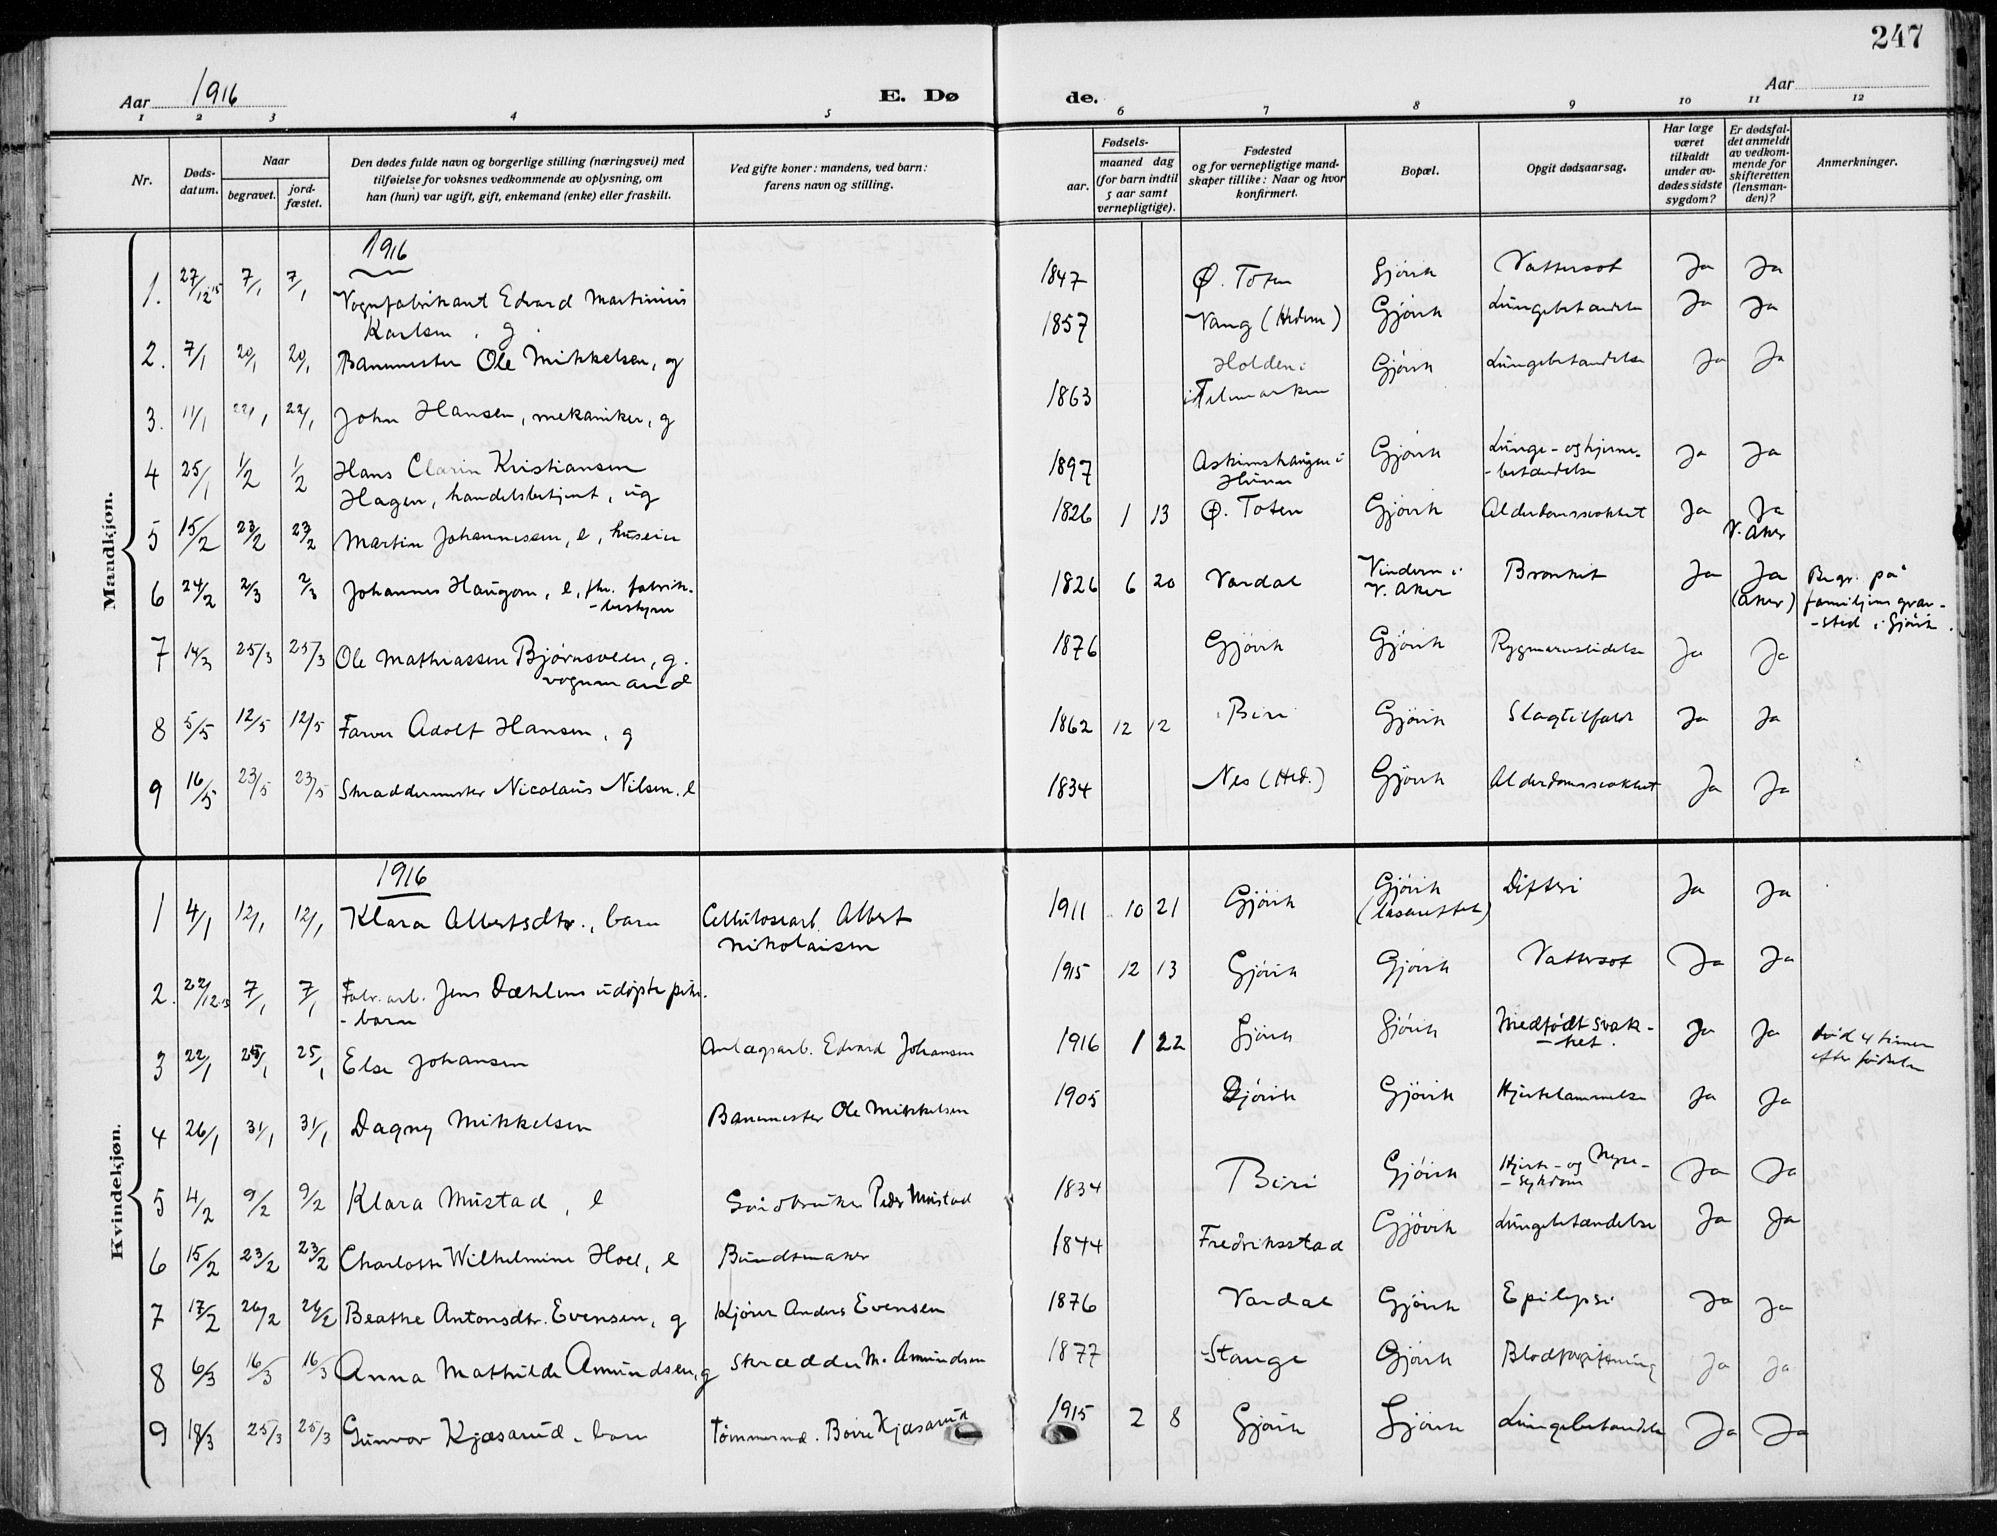 247
Aar 1916
E. Dø
de.
Aar
1 2 3 4 5 6 7 8 9 10 11 12
Nr.
Døds-
datum.
Naar
begravet.
jord-
fæstet.
Den dødes fulde navn og borgerlige stilling (næringsvei) med
tilføielse for voksnes vedkommende av oplysning, om
han (hun) var ugift, gift, enkemand (enke) eller fraskilt.
Ved gifte koner: mandens, ved barn:
farens navn og stilling.
Fødsels-
aar.
maaned dag
(for barn indtil
5 aar samt
vernepligtige).
Fødested
og for vernepligtige mand-
skaper tillike: Naar og hvor
konfirmert.
Bopæl.
Opgit dødsaarsag.
Har læge
været
tilkaldt
under av-
dødes sidste
sygdom?
Er dødsfal-
det anmeldt
av vedkom-
mende for
skifteretten
(lensman-
den)?
Anmerkninger.
Mandkjøn.
1916
1. 27/12 15 7/1 7/1 Vognfabrikant Edvard Martinius 1847 Ø. Toten Gjövik Vattersot Ja Ja
Karlsen, g.
2. 7/1 20/1 20/1 Banemester Ole Mikkelsen, g 1857 Vang (Hedem) Gjövik Lungebetændelse Ja Ja
3. 11/1 22/1 22/1 John Hansen, mekaniker, g 1863 Holden i Gjövik Lungebetændelse Ja Ja
Telemarken
4 25/1 1/2 1/2 Hans Clarin Kristiansen 1897 Askimshaugen i Gjövik Lunge- og hjerne- Ja Ja
Hagen, handelsbetjent, ug Hunn -betændelse
5 15/2 23/2 23/2 Martin Johannessen, e, huseier 1826 1 13 Ø. Toten Gjövik Alderdomssvakhet Ja Ja
V. Aker
6 24/2 2/3 2/3 Johannes Haugom, e, fhv. fabrik- 1826 6 20 Vardal Vindern i Bronkit Ja Ja Begr. på
-bestyrer V. Aker (Aker) familjens grav-
-sted i Gjövik.
7 14/3 25/3 25/3 Ole Mathiassen Bjørnsveen, g. 1876 Gjövik Gjövik Rygmarvslidelse Ja Ja
vognmand
8 5/5 12/5 12/5 Farver Adolf Hansen, g 1862 12 12 Biri Gjövik Slagtilfæld Ja Ja
9 16/5 23/5 23/5 Skræddermester Nicolaus Nilsen, e 1834 Nes (Hed.) Gjövik Alderdomssvakhet Ja Ja
Kvindekjøn.
1916
1 4/1 12/1 12/1 Klara Albertsdtr., barn Cellulosearb. Albert 1911 10 21 Gjövik Gjövik Difteri Ja Ja
Nikolaisen (lasarettet)
2. 22/12 15 7/1 7/1 Fabr. arb. Jens Dæhlens udøpte pike- 1915 12 13 Gjövik Gjövik Vattersot Ja Ja
-barn
3 22/1 25/1 25/1 Else Johansen Anlægsarb. Edvard Johansen 1916 1 22 Gjövik Gjövik Medfödt svak- Ja Ja död 4 timer
-het. efter födselen
4 26/1 31/1 31/1 Dagny Mikkelsen Banemester Ole Mikkelsen 1905 Gjövik Gjövik Hjertelammelse Ja Ja
5 4/2 9/2 9/2 Klara Mustad, e Gaardbruker Peder Mustad 1834 Biri Gjövik Hjerte- og Nyre- Ja Ja
-sykdom
6 15/2 23/2 23/2 Charlotte Wilhelmine Hoel, e Bundtmaker 1844 Fredriksstad Gjövik Lungebetændelse Ja Ja
7 17/2 24/2 24/2 Beathe Antonsdtr. Evensen, g Kjörer Anders Evensen 1876 Vardal Gjövik Epilepsi Ja Ja
8 6/3 16/3 16/3 Anna Mathilde Amundsen, g Skrædder M. Amundsen 1877 Stange Gjövik Blodforgiftning Ja Ja
9 18/3 25/3 25/3 Gunvor Kjæsarud, barn Tömmermd. Kjæsarud 1915 2 8 Gjövik Gjövik Lungebetændelse Ja Ja